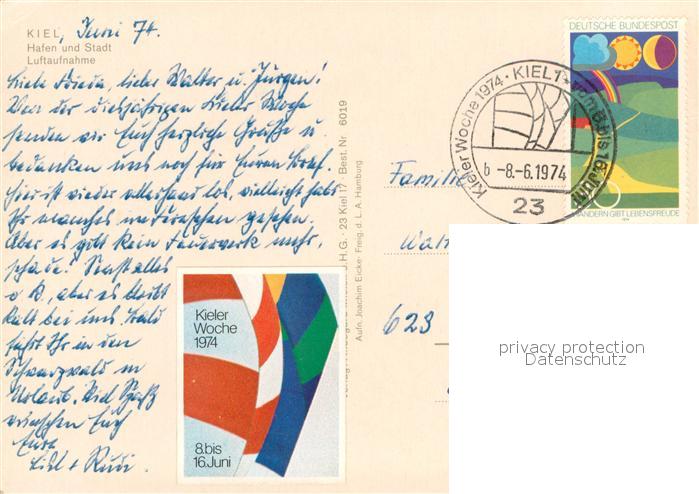 KIEL, Juni 74.
Hafen und Stadt
Luftaufnahme
Liebe Frieda, lieber Walter u. Jürgen!
Von der diesjährigen Kieler Woche
senden wir Euch herzliche Grüße u.
bedanken uns noch für Euren Brief.
Hier ist wieder allerhand los, vielleicht habt
Ihr manches im Fernsehen gesehen.
Aber es gibt kein Feuerwerk mehr,
schade! Sonst alles
o. K., aber es bleibt
kalt bei uns. Bald
fahrt Ihr in den
Schwarzwald in
Urlaub. Viel Spaß
wünschen Euch
Eure
Lisl + Rudi.
Kieler
Woche
1974
8. bis
16. Juni
J.H.G. · 23 Kiel 17 · Best. Nr. 6019
Aufn. Joachim Eicke · Freig. d. L. A. Hamburg
Kieler Woche 1974 · KIEL 1 · vom 8. bis 16. JUNI
b -8.-6.1974
23
DEUTSCHE BUNDESPOST
WANDERN GIBT LEBENSFREUDE
Familie
623
privacy protection
Datenschutz